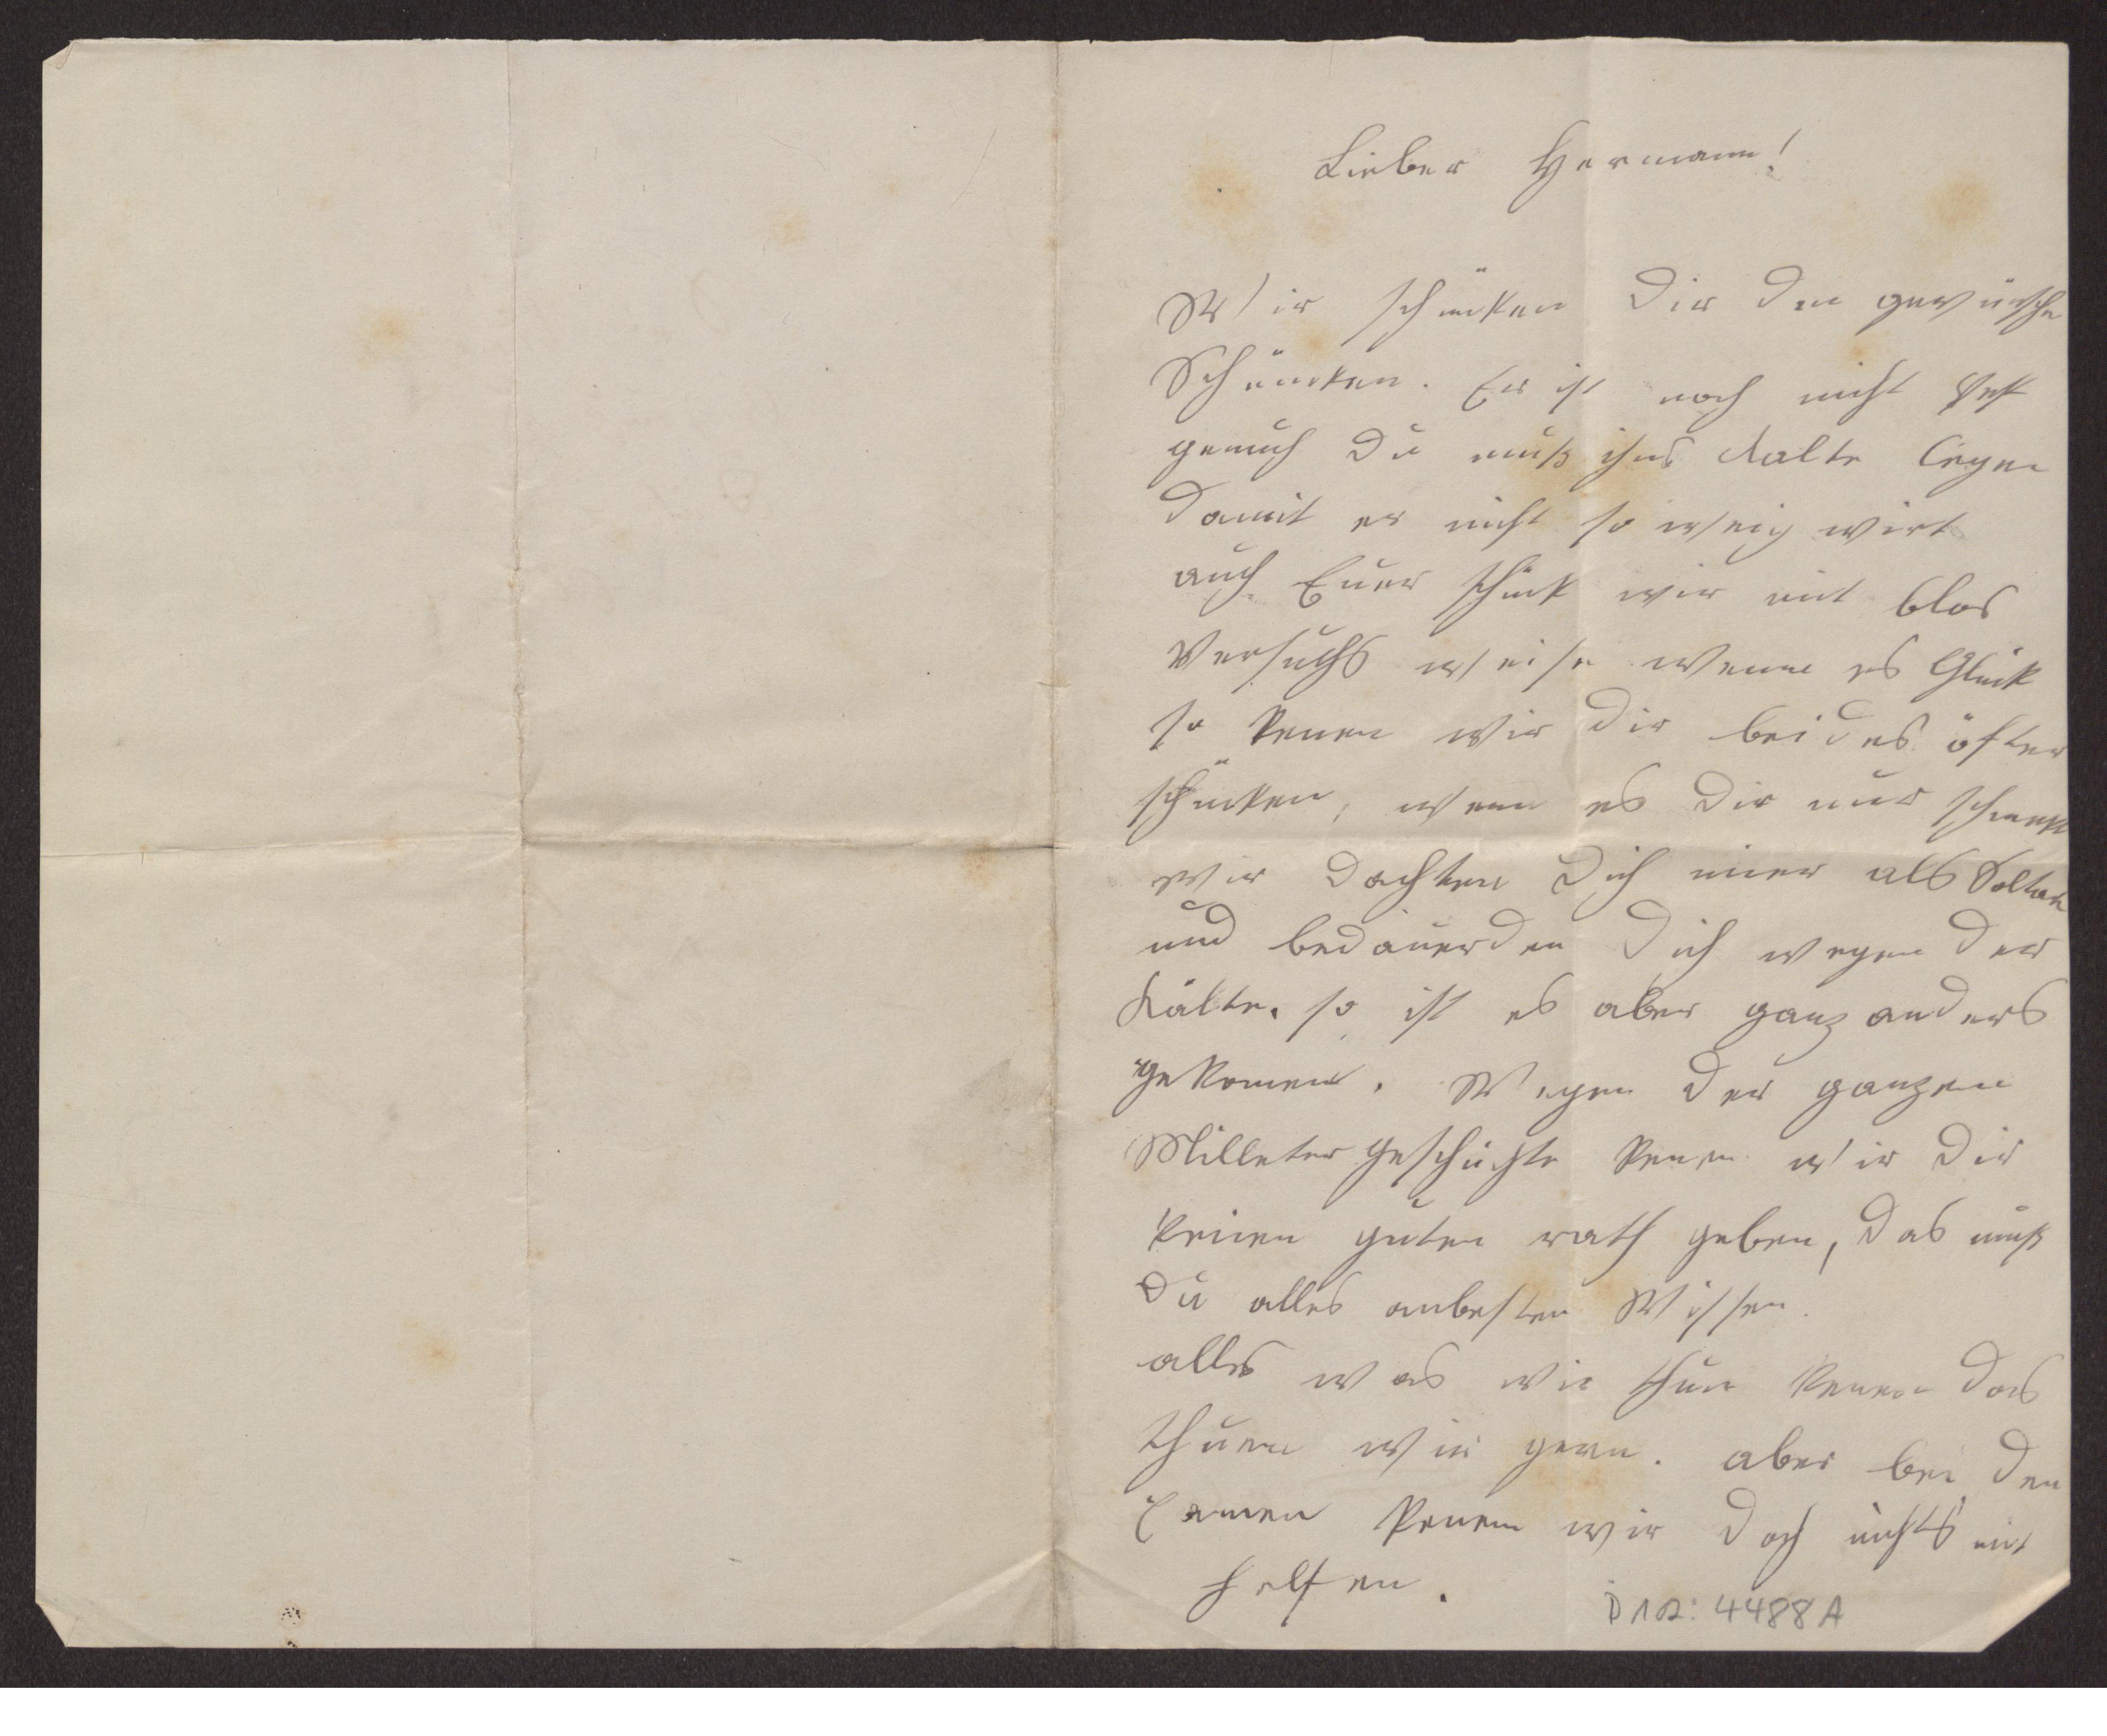 Lieber Hermann!
Wir schücken Dir den gewünsche
Schüncken. Er ist noch nicht fest
genuch Du muß ihns Kalte legen
damit er nicht so weig wirt
auch Euer schück wir mit blos
Versuchs weise wenn es Glück
so kenen wir dir beides öfter
schücken, wenn es Dir nur schmekt
wir dachten Dich imer als Soltat
und bedauerden Dich wegen der
Kälte. so ist es aber ganz anders
gekomen. Wegen der ganzen
Milleter geschichte kenen wir Dir
keinen guten rath geben, das muß
Du alles anbesten Wissen.
alles was wir thun kenen das
thuen wir gern. aber bei den
Examen kenen wir doch nichts mit
helfen.
D 102: 4488 A